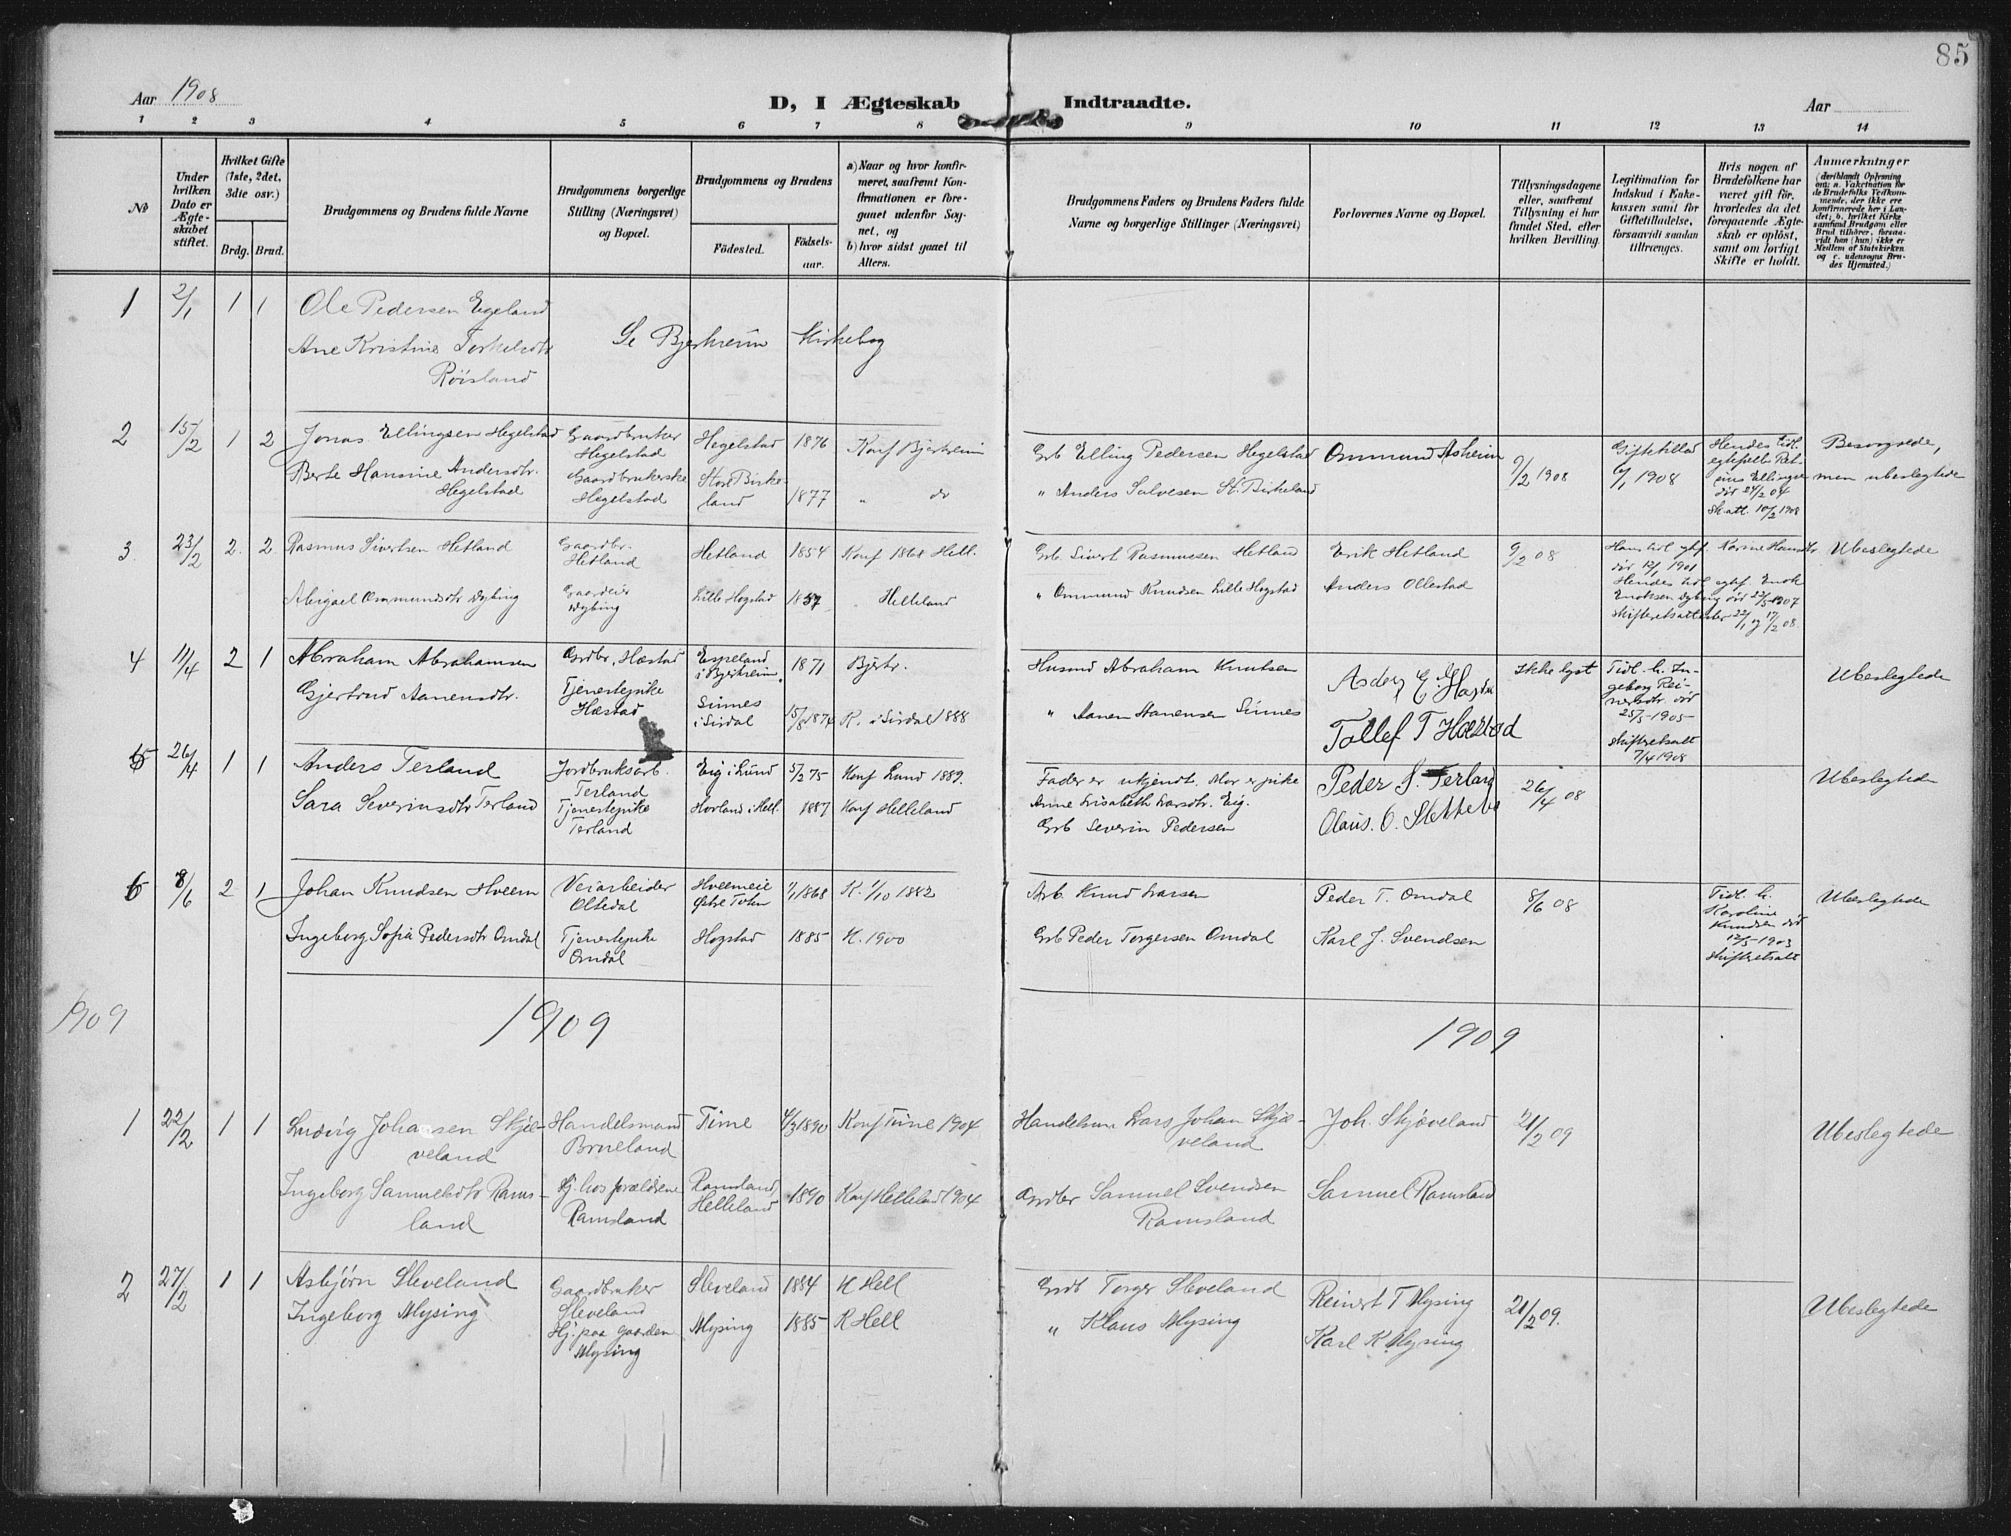 85
Aar 1908
D, I Ægteskab Indtraadte.
Aar
1 2 3 4 5 6 7 8 9 10 11 12 13 14
No
Under hvilken Dato er Ægteskabet stiftet.
Hvilket Gifte (1ste, 2det, 3die osv.)
Brdg. Brud.
Brudgommens og Brudens fulde Navne
Brudgommens borgerlige Stilling (Næringsvei) og Bopæl.
Brudgommens og Brudens
Födested.
Födselsaar.
a) Naar og hvor konfirmeret, saafremt Konfirmationen er foregaaet udenfor Sognet, og
b) hvor sidst gaaet til Alters.
Brudgommens Faders og Brudens Faders fulde Navne og borgerlige Stillinger (Næringsvei)
Forlovernes Navne og Bopæl.
Tillysningsdagene eller, saafremt Tillysning ei har fundet Sted, efter hvilken Bevilling.
Legitimation for Indskud i Enkekassen samt for Giftetilladelse, forsaavidt saadan tiltrænges.
Hvis nogen af Brudefolkene har været gift för, hvorledes da det foregaaende Ægteskab er oplöst, samt om lovligt Skifte er holdt.
Anmærkninger (deriblandt Oplysning om: a. Vakcination for de Brudefolks Vedkommende, der ikke ere konfirmerede her i Landet; b. hvilket Kirkesamfund Brudgom eller Brud tilhörer, forsaavidt han (hun) ikke er Medlem af Statskirken og c. udensogns Brudes Hjemsted.)
1 2/1 1 1 Ole Pedersen Egeland
Ane Kristine Torkelsdtr
Röisland
Se Bjerkreim Kirkebog
2 15/2 1 2 Jonas Ellingsen Hegelstad Gaardbruker Hegelstad Hegelstad 1876 Konf Bjerkreim
Berte Hansine Andersdtr. Hegelstad Gaardbrukerske Hegelstad Store Birkeland 1877 " do
Grb Elling Pedersen Hegelstad Ommund Asheim 9/2 1908 Giftetillad 6/1 1908
" Anders Salvesen St. Birkeland
Besvogrede, men ubeslegtede
3. 23/2 2. 2. Rasmus Sivertsen Hetland Gaardbr. Hetland Hetland 1854 Konf 1868 Hell.
Abigael Ommundsdtr Dybing Dybing Lille Hogstad 1857 Helleland
Grb. Sivert Rasmussen Hetland Erik Hetland 9/2 08
" Ommund Knudsen Lille Hogstad Anders Ollestad
Ubeslegtede
4 11/4 2 1 Abraham Abrahamsen Grdbr. Hæstad Espeland i Bjerkreim. 1871 Bjerkr.
Gjertrud Aanensdtr. Tjenestepike Hæstad Sinnes i Sirdal 15/8 1874 K. i Sirdal 1888
Husmd Abraham Knutsen
" Aanen Hanensen Sinnes
Tollef T Hæstad
Ikke lyst
Tidl. g. Ingeborg Reinertsdtr. död 25/5-1905- skifteretsatt 7/4 1908
Ubeslegtede
5 26/4 1 1 Anders Terland Jordbruksarb. Terland Eig i Lund 5/2 75 Konf Lund 1889.
Sara Severinsdtr Terland Tjenestepike Terland Hovland i Hell. 1887 Konf Helleland
Fader er ukjendt. Mor er pike
Anne Lisabeth Larsdtr. Eig.
Grb Severin Pedersen
Peder S. Terland
Olaus. O. Slettebø
26/4 08
Ubeslegtede
6 8/6 2 1 Johan Knudsen Hveem Veiarbeider Oltedal Hveemeie Østre Toten 1/1 1868 K. 1/10 1882
Ingeborg Sofia Pedersdtr Omdal Tjenestepike Omdal Hogstad 1885 K. 1900
Arb. Knud Larsen Peder T. Omdal 8/6 08
Grb Peder Torgersen Omdal Karl J. Svendsen
Tidl. g. Karoline Knudsen död 12/5-1903 skifteretsatt
Ubeslegtede
1909 1909 1909
1 22/2 1 1 Ludvig Johansen Skjæveland Handelsmand Brueland Time 4/3 1890 Konf Time 1904
Ingeborg Samuelsdtr Ramsland Hj. hos forældrene Ramsland Ramsland, Helleland 1890 Konf Helleland 1904
Handelsm Lars Johan Skjæveland Joh. Skjæveland 21/2 09
Grdbr Samuel Svendsen Ramsland Samuel Ramsland
Ubeslegtede
2 27/2 1 1 Asbjørn Sleveland Gaardbruker Sleveland Sleveland 1884 K Hell
Ingeborg Mysing Hj. paa gaarden Mysing Mysing 1885 K Hell
Grdb Torger Sleveland Reinert T Mysing 21/2 09.
" Klaus Mysing Karl K Mysing
Ubeslegtede